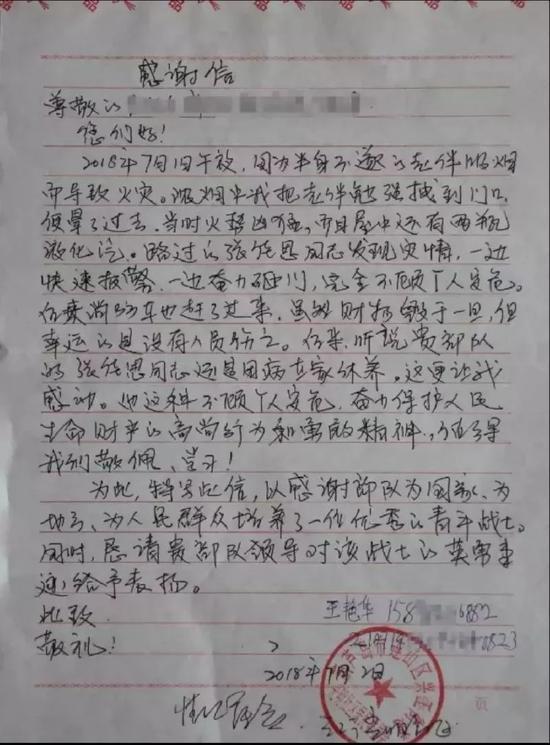 感谢信
尊敬的
您们好!
2018年7月1日午夜,因为半身不遂的老伴吸烟
而导致火灾。浓烟中我把老伴勉强拽到门口
便晕了过去。当时火势凶猛,而且屋中还有两瓶
液化汽。路过的张能思同志发现灾情,一边
快速报警,一边奋力砸门,完全不顾个人安危。
后来消防车也赶了过来。虽然财物毁于一旦,但
幸运的是没有人员伤亡。后来,听说贵部队
的张能思同志还是因病在家休养。这更让我
感动。他这种不顾个人安危,奋力保护人民
生命财产的高尚行为和勇敢精神,值得
我们敬佩、学习!
为此,特写此信,以感谢部队为国家、为
地方、为人民群众培养了一位优秀的青年战士。
同时,恳请贵部队领导对该战士的英勇事
迹给予表扬。
此致 王艳华 158 6882
敬礼! 0823
2018年7月2日
情况属实
页